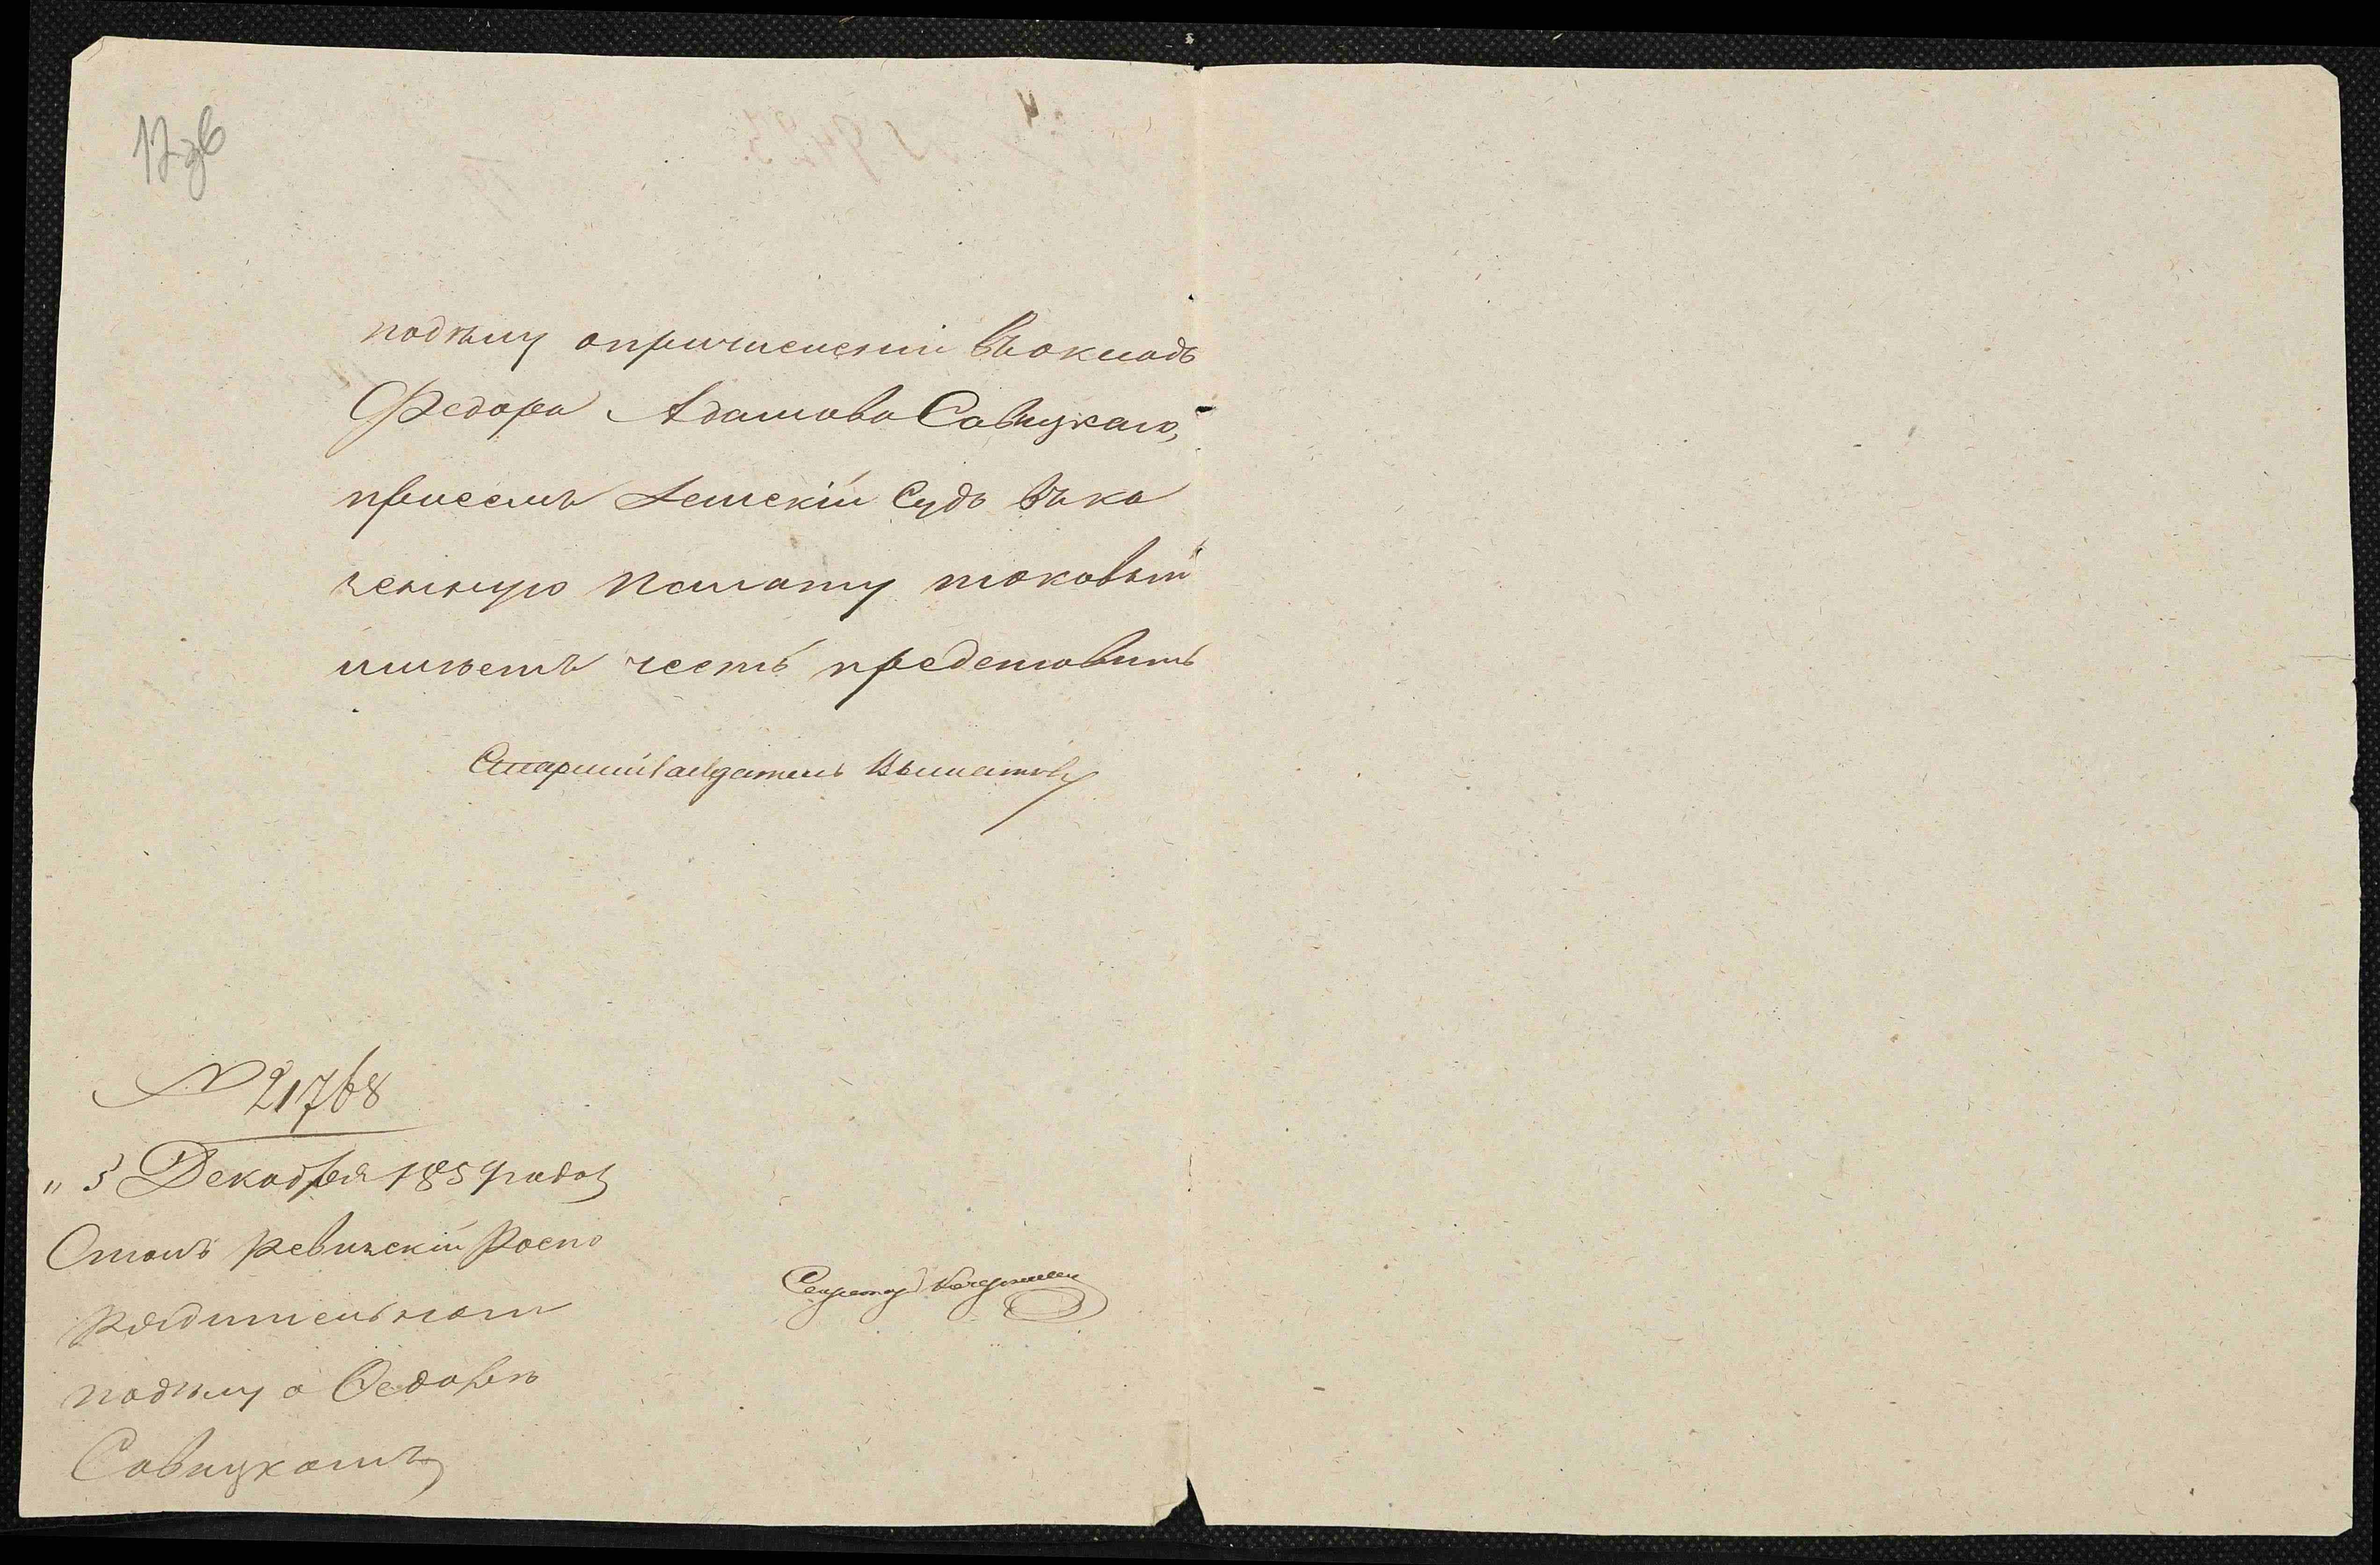 17 зв
подѣлу опричислении въокладъ
Федора Адамова Савицкаго,
присемъ Земскій Судъ въка
зенную Палату таковый
имѣетъ честь представить
Старшій Засѣдатель
№ 21768
„ 3 Декабря 1859 года
Столъ Ревизскій Роспо
рядительном
подѣлу о Ѳедорѣ
Савицкомъ
Секретарь